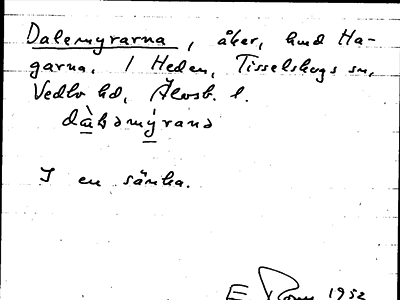 Dalemyrarna, åker, hmd Ha-
garna. 1 Heden, Tisselskogs sn,
Vedbo hd, Älvsb. l.
dàləmyranə
I en sänka.
E 1952